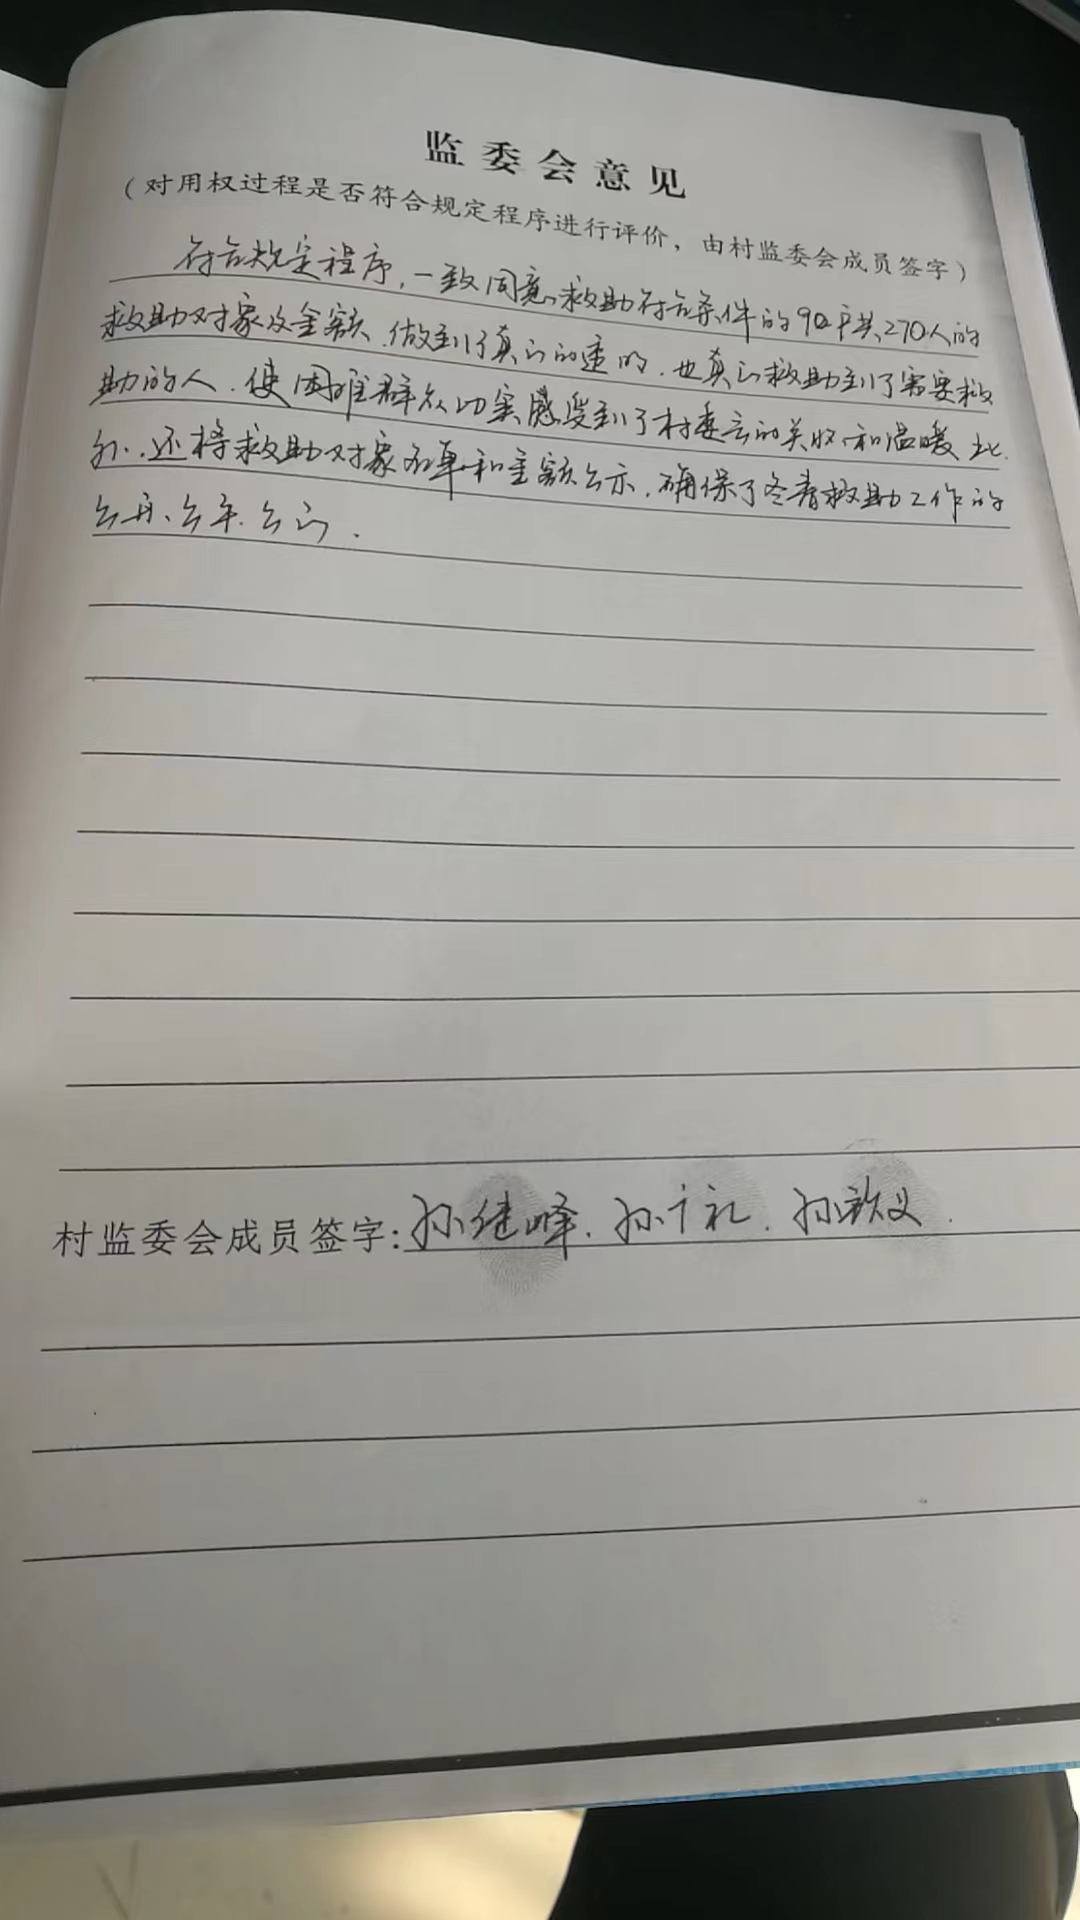 监委会意见
（对用权过程是否符合规定程序进行评价，由村监委会成员签字）
符合规定程序，一致同意，救助符合条件的90户共270人的
救助对象及金额，做到了真正的透明，也真正救助到了需要救
助的人，使困难群众切实感受到了村委会的关心和温暖，此
外，还将救助对象名单和金额公示，确保了冬春救助工作的
公开、公平、公正．
村监委会成员签字：孙继峰、孙礼、孙义．